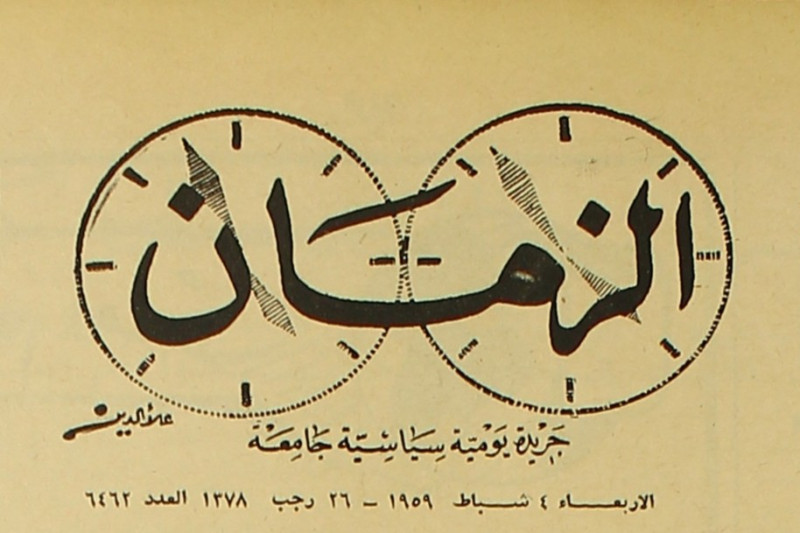 الزمَان
علاء الدين
جَريدة يَوميّة سيَاسِيّة جَامِعَة
الاربعـاء ٤ شـباط ١٩٥٩ – ٢٦ رجب ١٣٧٨ العدد ٦٤٦٢